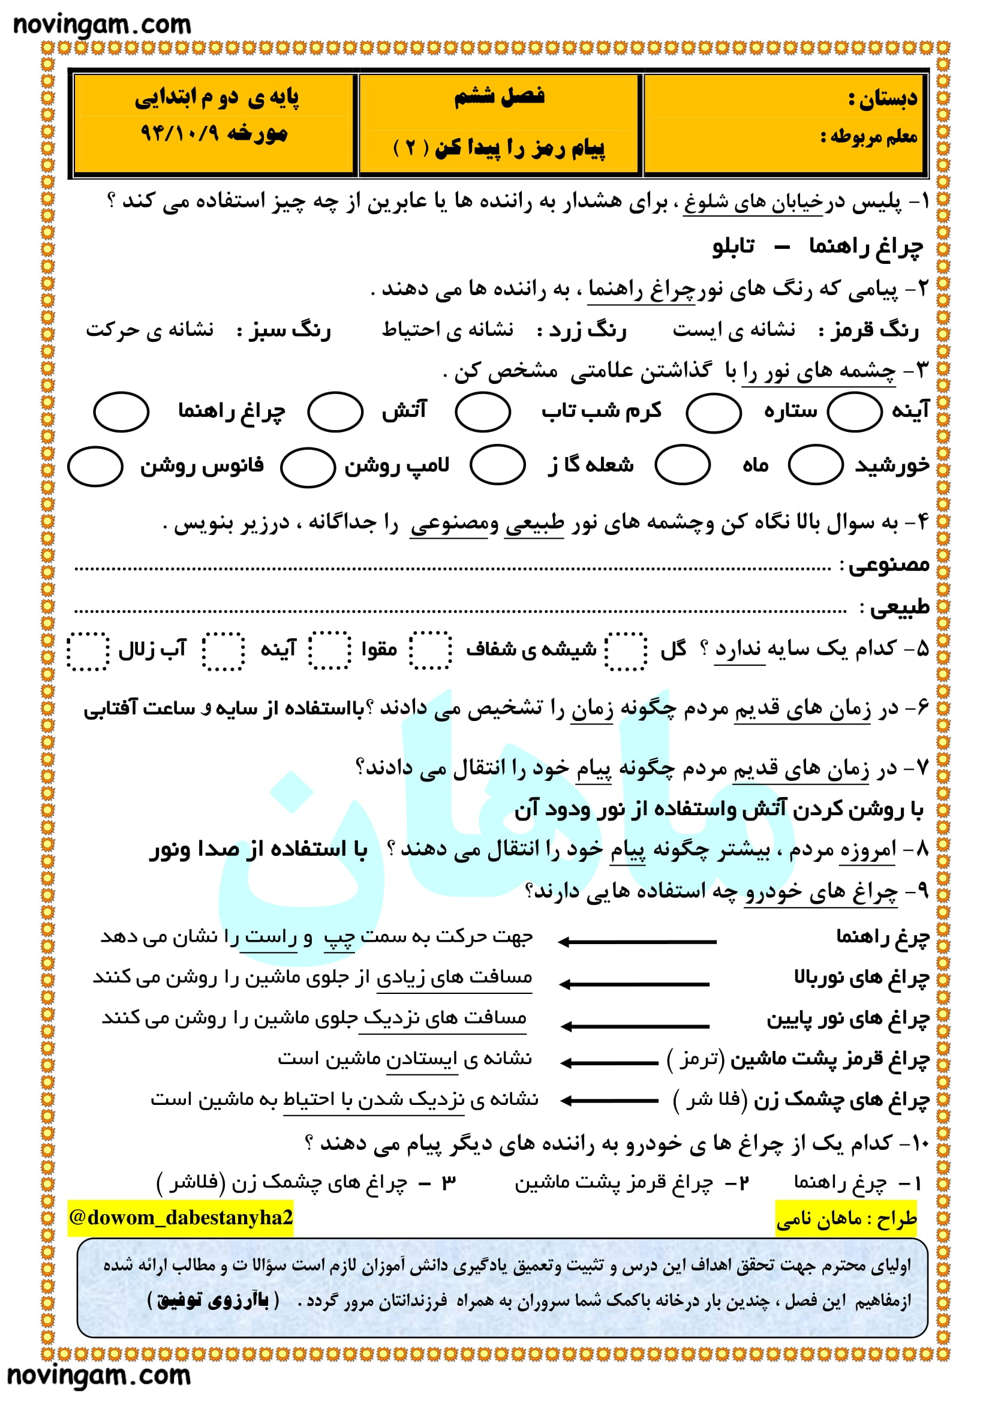 novingam.com
دبستان :
معلم مربوطه :
فصل ششم
پیام رمز را پیدا کن ( ۲ )
پایه ی دو م ابتدایی
مورخه ۹۴/۱۰/۹
۱- پلیس درخیابان های شلوغ ، برای هشدار به راننده ها یا عابرین از چه چیز استفاده می کند ؟
چراغ راهنما – تابلو
۲- پیامی که رنگ های نورچراغ راهنما ، به راننده ها می دهند .
رنگ قرمز : نشانه ی ایست رنگ زرد : نشانه ی احتیاط رنگ سبز : نشانه ی حرکت
۳- چشمه های نور را با گذاشتن علامتی مشخص کن .
آینه ستاره کرم شب تاب آتش چراغ راهنما
خورشید ماه شعله گا ز لامپ روشن فانوس روشن
۴- به سوال بالا نگاه کن وچشمه های نور طبیعی ومصنوعی را جداگانه ، درزیر بنویس .
مصنوعی : ................................................................
طبیعی : ................................................................
۵- کدام یک سایه ندارد ؟ گل شیشه ی شفاف مقوا آینه آب زلال
۶- در زمان های قدیم مردم چگونه زمان را تشخیص می دادند ؟بااستفاده از سایه و ساعت آفتابی
۷- در زمان های قدیم مردم چگونه پیام خود را انتقال می دادند؟
با روشن کردن آتش واستفاده از نور ودود آن
۸- امروزه مردم ، بیشتر چگونه پیام خود را انتقال می دهند ؟ با استفاده از صدا ونور
۹- چراغ های خودرو چه استفاده هایی دارند؟
چرغ راهنما جهت حرکت به سمت چپ و راست را نشان می دهد
چراغ های نوربالا مسافت های زیادی از جلوی ماشین را روشن می کنند
چراغ های نور پایین مسافت های نزدیک جلوی ماشین را روشن می کنند
چراغ قرمز پشت ماشین (ترمز ) نشانه ی ایستادن ماشین است
چراغ های چشمک زن (فلا شر ) نشانه ی نزدیک شدن با احتیاط به ماشین است
۱۰- کدام یک از چراغ ها ی خودرو به راننده های دیگر پیام می دهند ؟
۱- چرغ راهنما ۲- چراغ قرمز پشت ماشین ۳ - چراغ های چشمک زن (فلاشر )
طراح : ماهان نامی
@dowom_dabestanyha2
اولیای محترم جهت تحقق اهداف این درس و تثبیت وتعمیق یادگیری دانش آموزان لازم است سؤالا ت و مطالب ارائه شده
ازمفاهیم این فصل ، چندین بار درخانه باکمک شما سروران به همراه فرزندانتان مرور گردد . ( باآرزوی توفیق )
ماهان
novingam.com